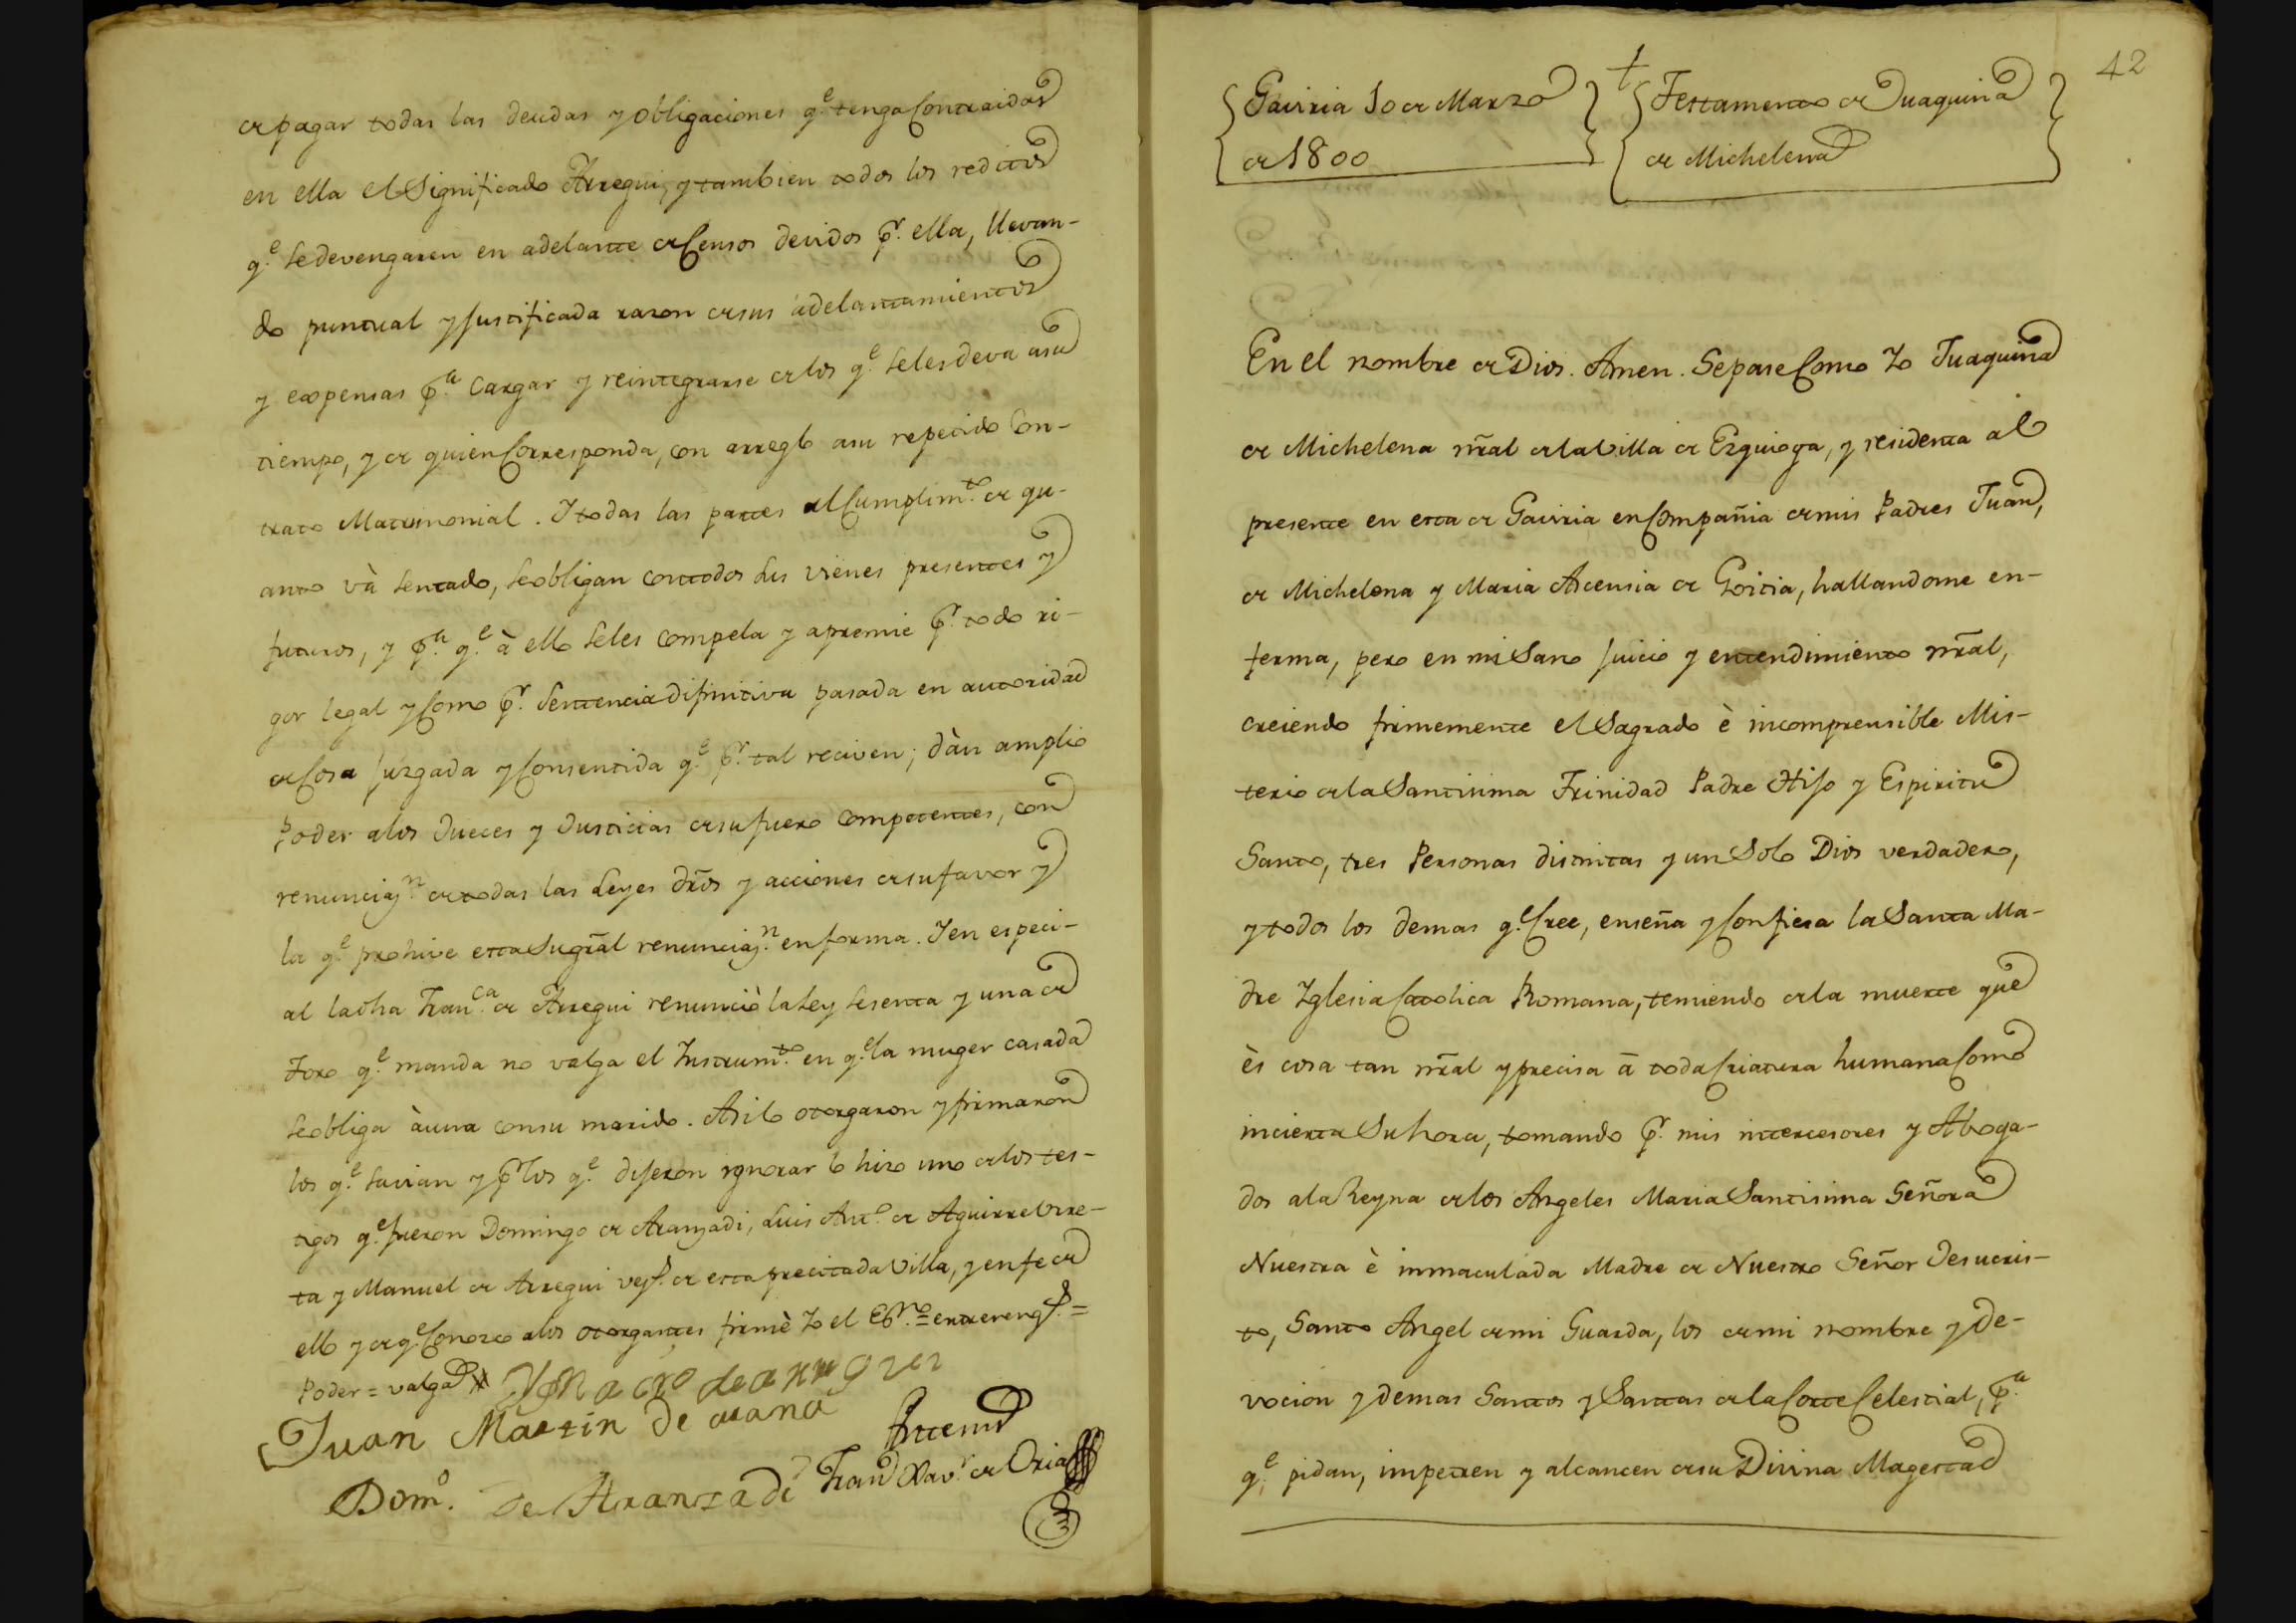 de pagar todas las deudas y obligaciones q.e tenga Contraidas
en ella el Significado Arregui, y tambien todos los reditos
q.e se devengaren en adelante de Censos devidos p.r ella, llevan-
do puntual y justificada razon de sus adelantamientos
y expensas p.a cargar y reintegrarse de los q.e se les deva a su
tiempo, y de quien Corresponda, con arreglo a su repetido Con-
trato Matrimonial. Y todas las partes al Cumplim.to de qu-
anto và sentado, se obligan con todos sus vienes presentes y
futuros, y p.a q.e à ello se les compela y apremie p.r todo ri-
gor legal y Como p.r Sentencia difinitiva pasada en autoridad
de Cosa juzgada y Consentida q.e p.r tal reciven; dàn amplio
Poder a los Jueces y Justicias de su fuero competentes, con
renunciaz.n de todas las Leyes dros y acciones de su favor y
la q.e prohive esta Su gral renunciaz.n en forma. Y en especi-
al la dha Fran.ca de Arregui renunciò la Ley sesenta y una de
Toro q.e manda no valga el Instrum.to en q.e la muger casada
se obliga àuna con su marido. Asi lo otorgaron y firmaron
los q.e savian y p.r los q.e dijeron ignorar lo hizo uno de los tes-
tigos q.e fueron Domingo de Aranzadi, Luis Ant.o de Aguirre Urre-
ta y Manuel de Arregui vez.s de esta precitada Villa, y en fe de
ello y de q.e Conozco a los otorgantes firmè Yo el Esno.=entrereng.s=
Poder = valga Ygnacio de arregui
Juan Martin de arana
Antemi
Dom.o de Aranzadi Fran.co Xav.r de Oria
42
Gaviria 10 de Marzo
de 1800
Testamento de Juaquina
de Michelena
En el nombre de Dios. Amen. Sepase Como Yo Juaquina
de Michelena nral de la Villa de Ezquioga, y residenta al
presente en esta de Gaviria en Compañia de mis Padres Juan,
de Michelena y Maria Ascensia de Goitia, hallandome en-
ferma, pero en mi Sano juicio y entendimiento nral,
creiendo firmemente el Sagrado è incomprensible Mis-
terio de la Santisima Trinidad Padre Hijo y Espiritu
Santo, tres Personas distintas y un Solo Dios verdadero,
y todos los demas q.e Cree, enseña y Confiesa la Santa Ma-
dre Yglesia Catolica Romana, temiendo de la muerte que
ès cosa tan nral y precisa à toda Criatura humana Como
incierta Su hora, tomando p.r mis intercesores y Aboga-
dos a la Reyna de los Angeles Maria Santisima Señora
Nuestra è inmaculada Madre de Nuestro Señor Jesucris-
to, Santo Angel de mi Guarda, los de mi nombre y de-
vocion y demas Santos y Santas de la Corte Celestial, p.a
q.e pidan, impetren y alcancen de su Divina Magestad